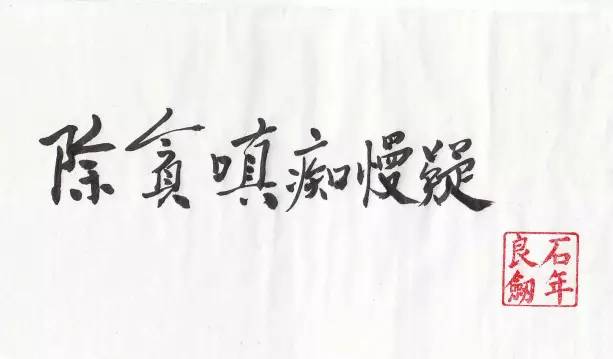 除貪嗔痴慢疑
石年
良劍